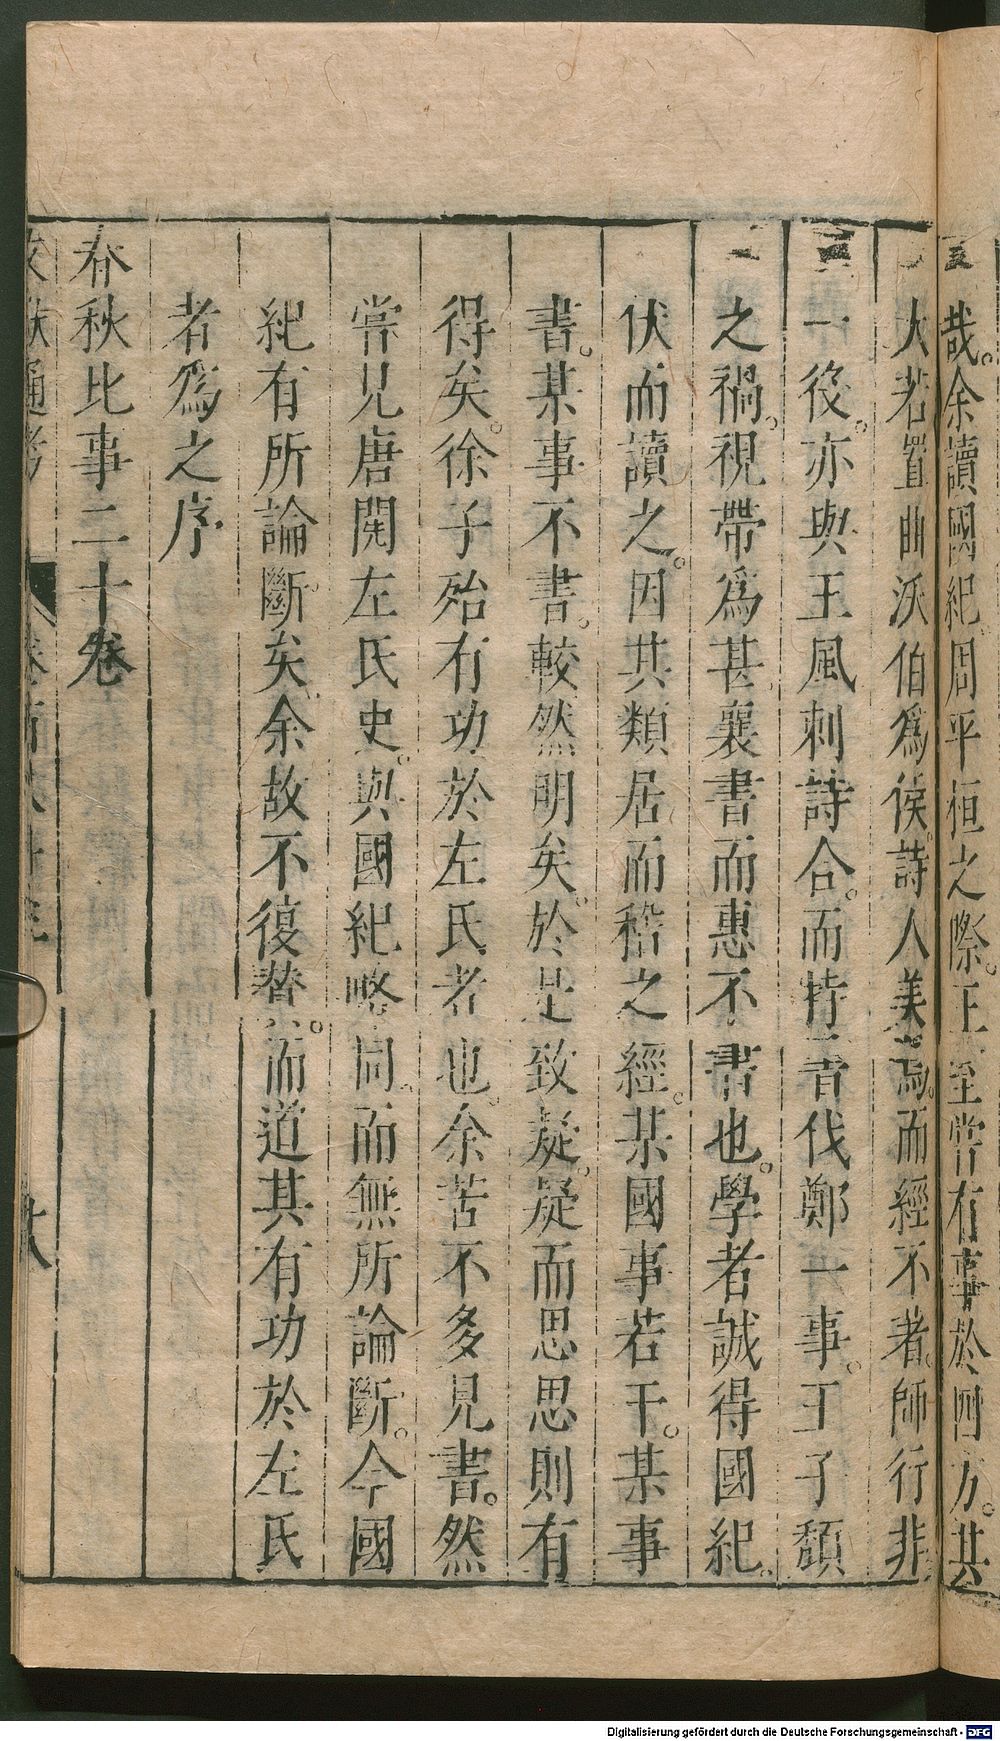 哉。余讀國紀。周平桓之際。王室嘗有事於四方。其
大若置曲沃伯爲侯。詩人美焉。而經不著。師行非
一役。亦與王風刺詩合。而特書伐鄭一事。王子頽
之禍。視帶爲甚。襄書而惠不書也。學者誠得國紀。
伏而讀之。因其類居而稽之經。某國事若干。某事
書。某事不書。較然明矣。於是致疑。疑而思思則有
得矣。徐子殆有功於左氏者也。余苦不多見書。然
嘗見唐閎左氏史。與國紀略同。而無所論斷。今國
紀有所論斷矣。余故不復贊。而道其有功於左氏
者爲之序
春秋比事二十卷
文獻通考
卷百八十三
十八
Digitalisierung gefördert durch die Deutsche Forschungsgemeinschaft - DFG